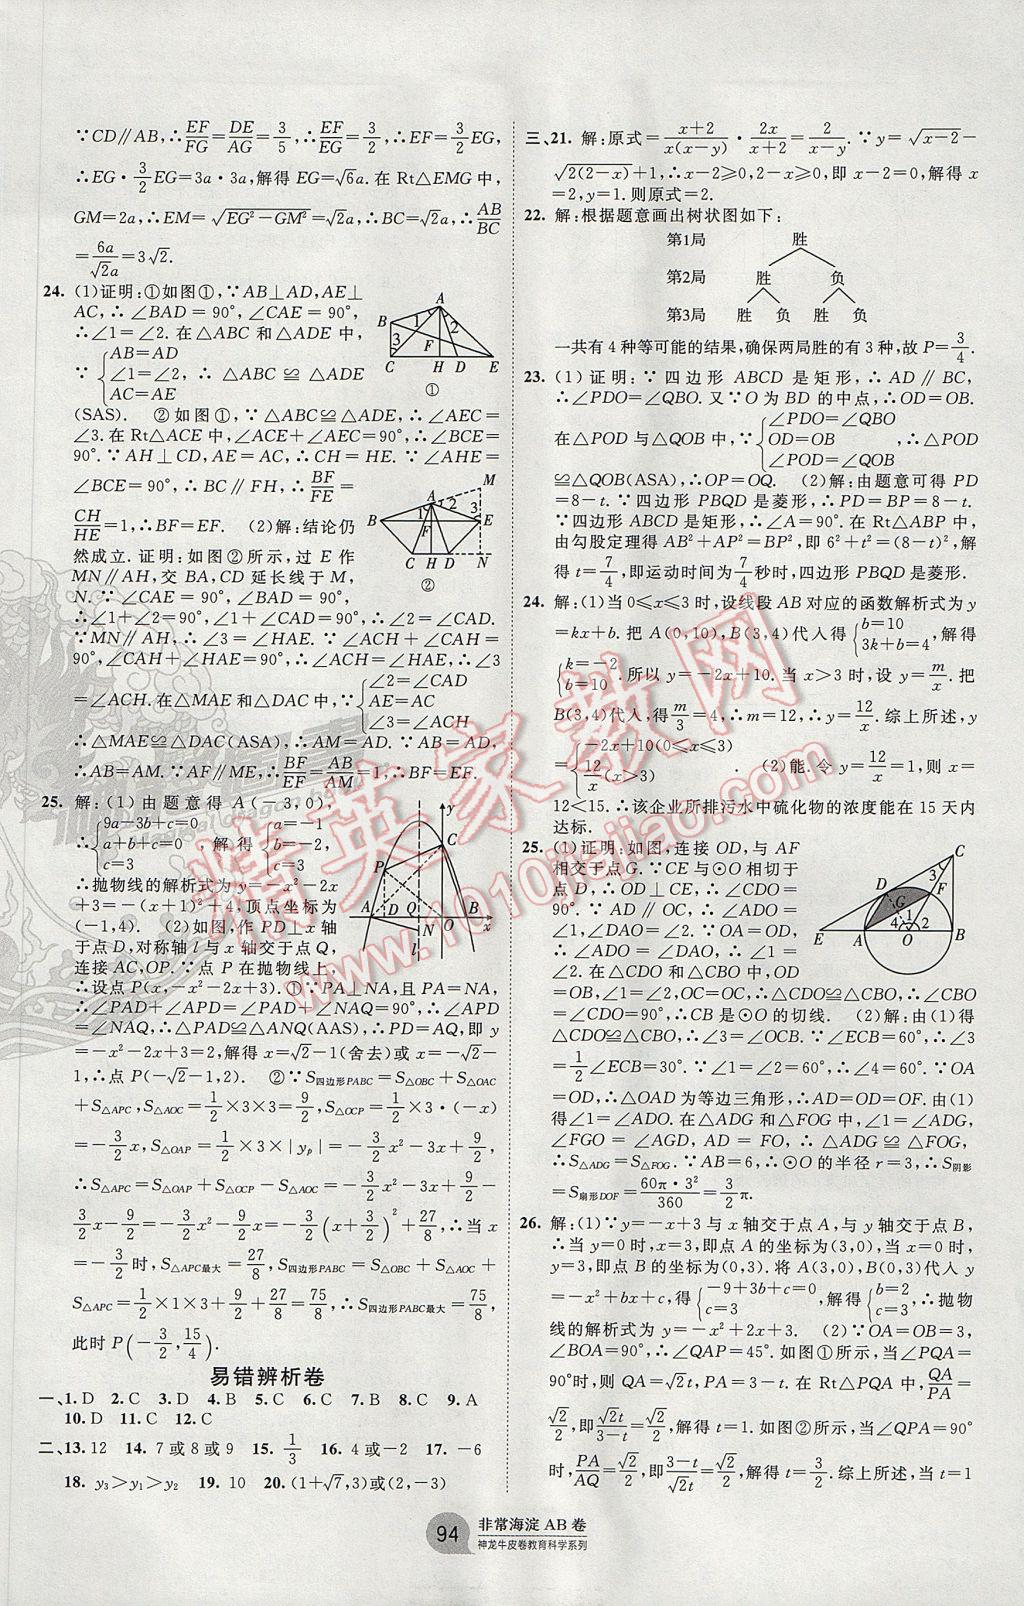 ∵CD∥AB,∴EF/FG=DE/AG=3/5,∴EF/EG=3/2,∴EF=3/2EG,
∴EG·3/2EG=3a·3a,解得EG=√6a.在Rt△EMG中,
GM=2a,∴EM=√(EG²-GM²)=√2a,∴BC=√2a,∴AB/BC
=6a/(√2a)=3√2.
24. (1)证明:①如图①,∵AB⊥AD,AE⊥
AC,∴∠BAD=90°,∠CAE=90°,
∴∠1=∠2.在△ABC和△ADE中,
∵{AB=AD
∠1=∠2
AC=AE
,∴△ABC≌△ADE
(SAS). ②如图①,∵△ABC≌△ADE,∴∠AEC=
∠3.在Rt△ACE中,∠ACE+∠AEC=90°,∴∠BCE=
90°.∵AH⊥CD,AE=AC,∴CH=HE.∵∠AHE=
∠BCE=90°,∴BC∥FH,∴BF/FE=
CH/HE=1,∴BF=EF. (2)解:结论仍
然成立.证明:如图②所示,过E作
MN∥AH,交BA,CD延长线于M,
N.∵∠CAE=90°,∠BAD=90°,
∴∠1+∠2=90°,∠1+∠CAD=90°,∴∠2=∠CAD.
∵MN∥AH,∴∠3=∠HAE.∵∠ACH+∠CAH=
90°,∠CAH+∠HAE=90°,∴∠ACH=∠HAE,∴∠3
=∠ACH.在△MAE和△DAC中,∵{∠2=∠CAD
AE=AC
∠3=∠ACH
∴△MAE≌△DAC(ASA),∴AM=AD.∵AB=AD,
∴AB=AM.∵AF∥ME,∴BF/EF=AB/AM=1,∴BF=EF.
25. 解:(1)由题意得A(-3,0),
∴{9a-3b+c=0
a+b+c=0
c=3
,解得{a=-1
b=-2
c=3
∴抛物线的解析式为y=-x²-2x
+3=-(x+1)²+4,顶点坐标为
(-1,4). (2)如图,作PD⊥x轴
于点D,对称轴l与x轴交于点Q,
连接AC,OP.∵点P在抛物线上,
∴设点P(x,-x²-2x+3).①∵PA⊥NA,且PA=NA,
∴∠PAD+∠APD=∠PAD+∠NAQ=90°,∴∠APD
=∠NAQ,∴△PAD≌△ANQ(AAS),∴PD=AQ,即y
=-x²-2x+3=2,解得x=√2-1(舍去)或x=-√2-
1,∴点P(-√2-1,2). ②∵S四边形PABC=S△OBC+S△OAC
+S△APC,S△AOC=1/2×3×3=9/2,S△OCP=1/2×3·(-x)
=-3/2x,S△OAP=1/2×3×|yₚ|=-3/2x²-3x+9/2,
∴S△APC=S△OAP+S△OCP-S△AOC=-3/2x²-3x+9/2-
3/2x-9/2=-3/2x²-9/2x=-3/2(x+3/2)²+27/8,∴当x
=-3/2时,S△APC最大=27/8,S四边形PABC=S△OBC+S△AOC+
S△APC=1/2×1×3+9/2+27/8=75/8,∴S四边形PABC最大=75/8,
此时P(-3/2,15/4).
易错辨析卷
一、1.D 2.C 3.D 4.B 5.C 6.C 7.B 8.C 9.A
10.D 11.C 12.C
二、13.12 14.7或8或9 15.1/3 16.4或-2 17.-6
18.y₃>y₁>y₂ 19.10 20.(1+√7,3)或(2,-3)
三、21.解:原式=(x+2)/(x(x-y))·2x/(x+2)=2/(x-y).∵y=√(x-2)-
√(2(2-x))+1,∴x-2≥0,2-x≥0,即x-2=0,解得x=
2,y=1.则原式=2.
22. 解:根据题意画出树状图如下:
第1局 胜
第2局 胜 负
第3局 胜 负 胜 负
一共有4种等可能的结果,确保两局胜的有3种,故P=3/4.
23. (1)证明:∵四边形ABCD是矩形,∴AD∥BC,
∴∠PDO=∠QBO.又∵O为BD的中点,∴OD=OB.
在△POD与△QOB中,∵{∠PDO=∠QBO
OD=OB
∠POD=∠QOB
,∴△POD
≌△QOB(ASA),∴OP=OQ. (2)解:由题意可得PD
=8-t.∵四边形PBQD是菱形,∴PD=BP=8-t.
∵四边形ABCD是矩形,∴∠A=90°.在Rt△ABP中,
由勾股定理得AB²+AP²=BP²,即6²+t²=(8-t)²,解
得t=7/4,即运动时间为7/4秒时,四边形PBQD是菱形.
24. 解:(1)当0≤x≤3时,设线段AB对应的函数解析式为y
=kx+b.把A(0,10),B(3,4)代入得{b=10
3k+b=4
,解得
{k=-2
b=10
.所以y=-2x+10.当x>3时,设y=m/x.把
B(3,4)代入,得m/3=4,∴m=12,∴y=12/x.综上所述,y
={-2x+10(0≤x≤3)
12/x(x>3)
. (2)能.令y=12/x=1,则x=
12<15.∴该企业所排污水中硫化物的浓度能在15天内
达标.
25. (1)证明:如图,连接OD,与AF
相交于点G.∵CE与⊙O相切于
点D,∴OD⊥CE,∴∠CDO=
90°.∵AD∥OC,∴∠ADO=
∠1,∠DAO=∠2.∵OA=
OD,∴∠ADO=∠DAO,∴∠1=
∠2.在△CDO和△CBO中,OD
=OB,∠1=∠2,OC=OC,∴△CDO≌△CBO,∴∠CBO
=∠CDO=90°,∴CB是⊙O的切线. (2)解:由(1)得
△CDO≌△CBO,∴∠3=∠OCB.∵∠ECB=60°,∴∠3
=1/2∠ECB=30°.∵∠1=∠2=60°,∴∠4=60°.∵OA
=OD,∴△OAD为等边三角形,∴AD=OD=OF.由(1)
得∠1=∠ADO.在△ADG和△FOG中,∠1=∠ADG,
∠FGO=∠AGD,AD=FO,∴△ADG≌△FOG,
∴S△ADG=S△FOG.∵AB=6,∴⊙O的半径r=3,∴S阴影
=S扇形DOF=60π·3²/360=3/2π.
26. 解:(1)∵y=-x+3与x轴交于点A,与y轴交于点B,
∴当y=0时,x=3,即点A的坐标为(3,0),当x=0时,
y=3,即点B的坐标为(0,3).将A(3,0),B(0,3)代入y
=-x²+bx+c,得{-9+3b+c=0
c=3
,解得{b=2
c=3
,∴抛物
线的解析式为y=-x²+2x+3. (2)∵OA=OB=3,
∠BOA=90°,∴∠QAP=45°.如图①所示,当∠PQA=
90°时,设运动时间为t秒,则QA=√2t,PA=3-t.在Rt△PQA中,QA/PA=
√2/2,即√2t/(3-t)=√2/2,解得t=1.如图②所示,当∠QPA=90°
时,PA/AQ=√2/2,即(3-t)/(√2t)=√2/2,解得t=3/2.综上所述,当t=1
94
非常海淀AB卷
神龙牛皮卷教育科学系列
精英家教网
www.1010jiajiao.com